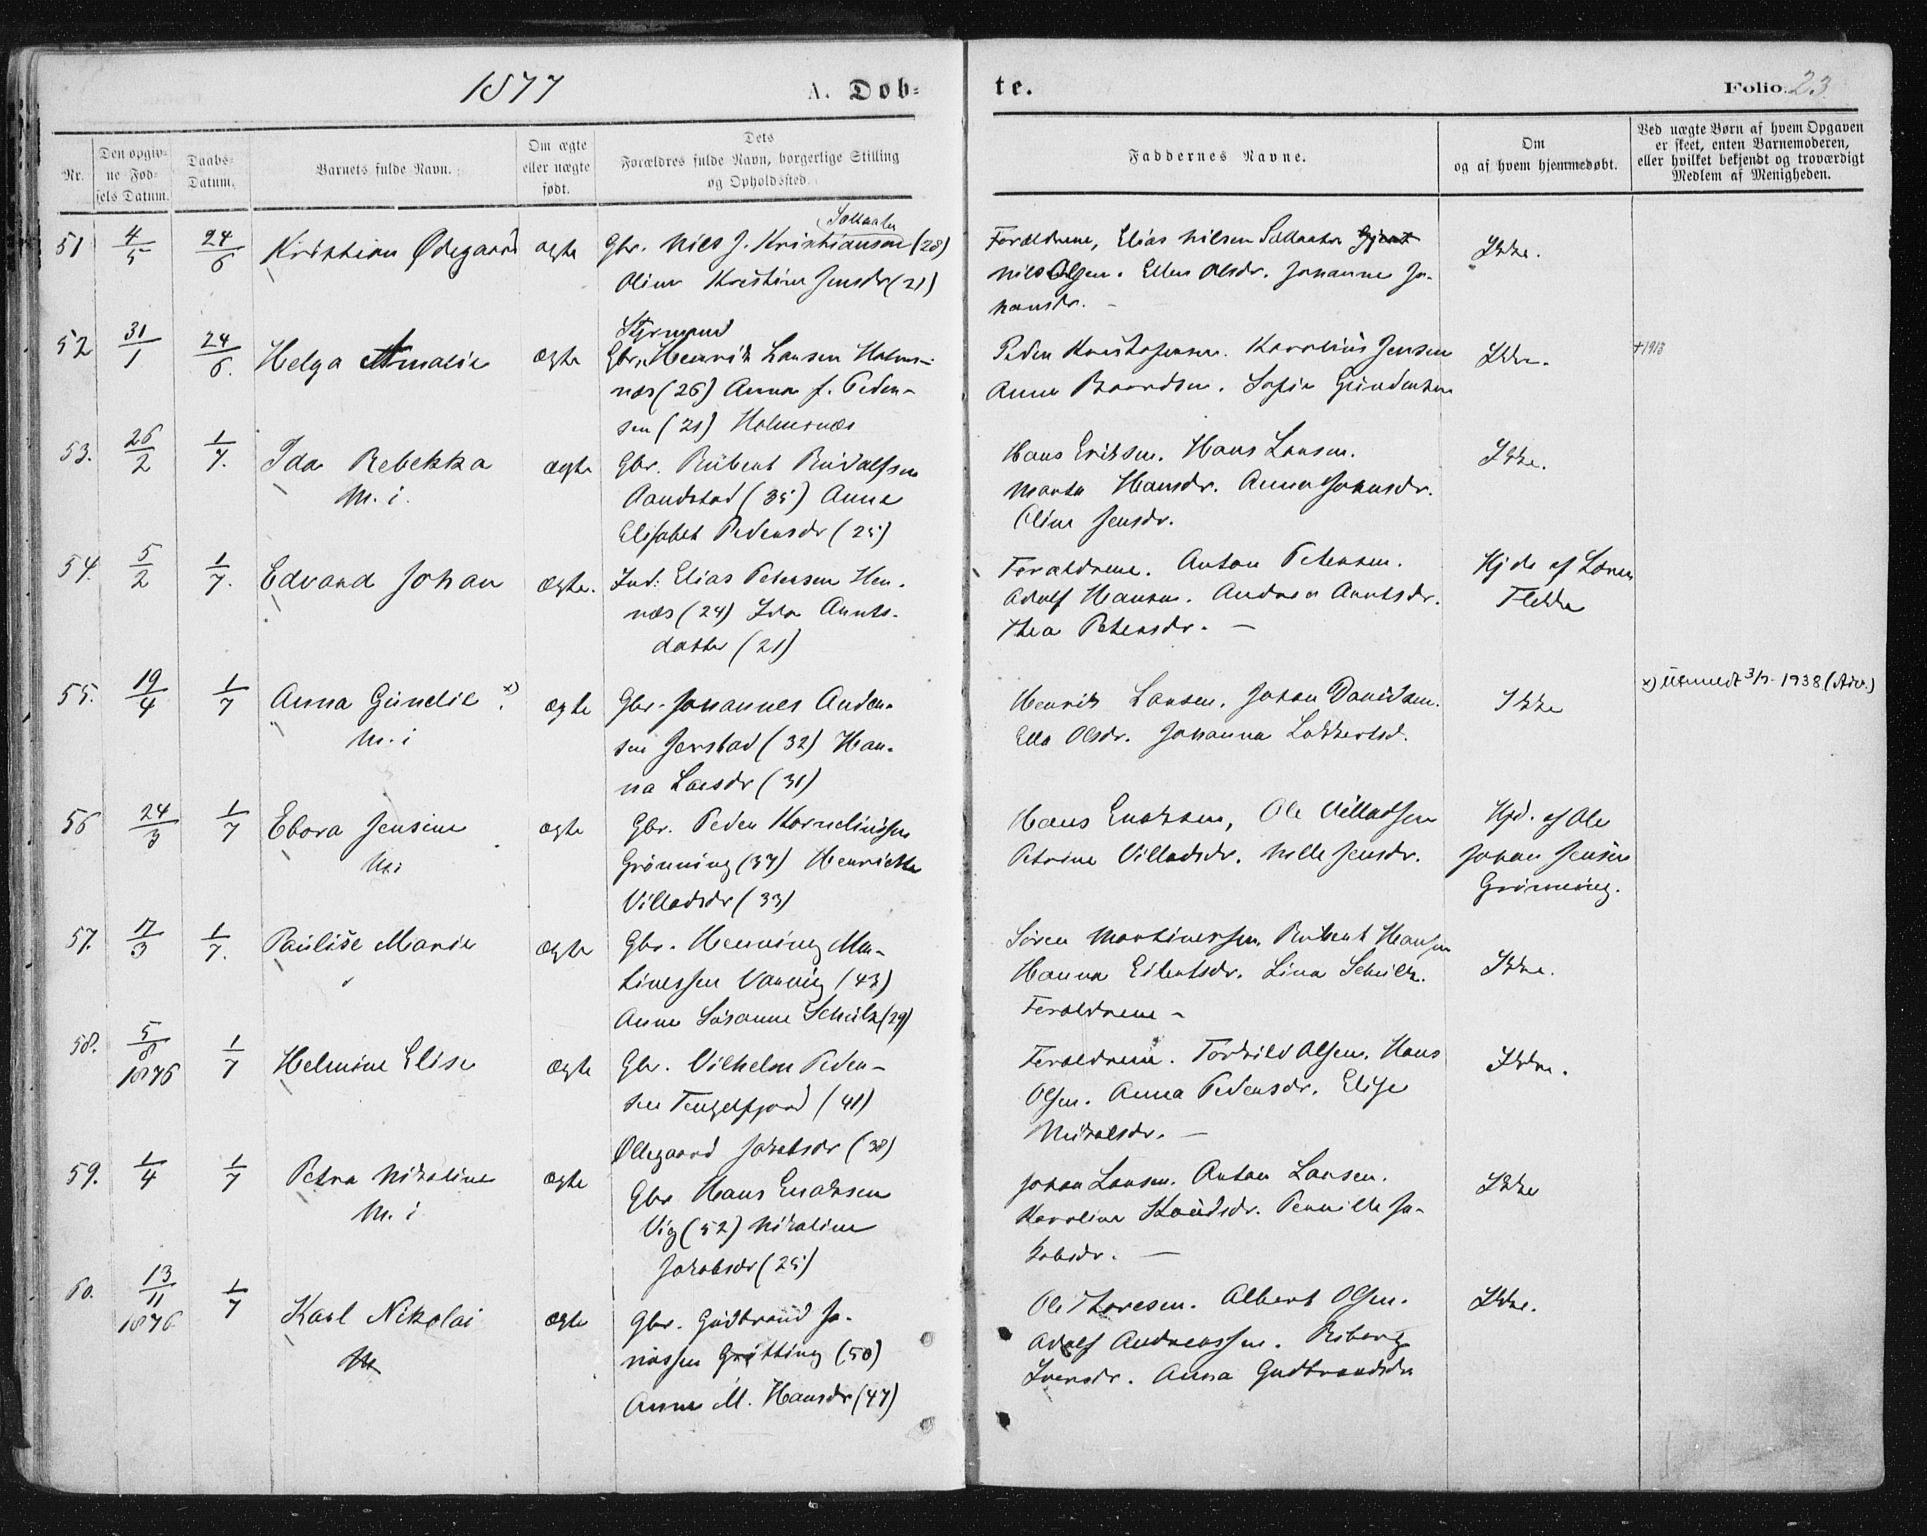 1877
A. Døb-
te.
Folio 23.
Nr.
Den opgiv-
ne Fød-
sels Datum.
Daabs-
Datum.
Barnets fulde Navn.
Om ægte
eller nægte
født.
Dets
Forældres fulde Navn, borgerlige Stilling
og Opholdssted.
Faddernes Navne.
Om
og af hvem hjemmedøbt.
Ved nægte Børn af hvem Opgaven
er skeet, enten Barnemoderen,
eller hvilket bekjendt og troværdigt
Medlem af Menigheden.
51 4/5 24/6 Kristian Ødegaard ægte
Gbr. Nils J. Kristiansen (28)
Oline Kristine Jensdr (21)
Forældrene, Elias Nilsen
Nils Olsen. Ellen Olsdr. Johanne Jo-
hansdr. -
Ikke.
52 31/1 24/6. Helga Amalie ægte
Styrmand
Gbr. Henrik Larsen Holms-
næs (26) Anna J. Peder-
sen (21) Holmsnæs
Peder Kristofersen. Karolius Jensen
Anna Baardsen. Sofie
Ikke.
+1913
53. 26/2 1/7. Ida Rebekka ægte
M. i.
Gbr. Rubert Rudolfsen
Sandstad (35) Anna
Elisabet Pedersdr (25)
Hans Eriksen. Hans Larsen.
Marta Hansdr. Anna Johnsdr.
Oline Jensdr.
Ikke.
54. 5/2 1/7. Edvard Johan ægte.
Ind. Elias Petersen Hen-
næs (24) Ida Arnts-
datter (21)
Forældrene. Anton Petersen.
Adolf Hansen. Andrea Arntsdr.
Thea Petersdr. -
Hjdø af Lærer
Flekke
55. 19/4 1/7 Anna Gunelie x) ægte
M. i
Gbr. Johannes Ander-
sen Jerstad (32) Han-
na Larsdr (31)
Henrik Larsen. Johan Davidsen.
Ella Olsdr. Johanna
Ikke
x) Utmeldt 3/7-1938 (Adv.)
56 24/3 1/7 Ebora Jensine ægte
M. i
Gbr. Peder Korneliussen
Grønning (37) Henrikke
Villadsdr (33)
Hans Enoksen, Ole Villadsen
Petrine Villadsdr. Nille Jensdr.
Hjd. af Ole
Johan Jensen
Grønning.
57. 17/3 1/7. Paulise Marie ægte
Gbr. Henning Mar-
tinussen Vanvig (43)
Anne Susanne Schulz (29)
Søren Martinussen, Rubert Hansen
Hanna Eilertsdr. Lina Schulz.
Forældrene -
Ikke.
58. 5/8 1876 1/7 Helmine Elise ægte
Gbr. Vilhelm Peder-
sen Tengelfjord (41)
Øllegaard Jakobsdr (38)
Forældrene. Torkild Olsen. Hans
Olsen. Anna Pedersdr. Elise
Nikolsdr. -
Ikke.
59. 1/4 1/7 Petra Nikoline ægte
M. i
Gbr Hans Enoksen
Vig (52) Nikoline
Jakobsdr (25)
Johan Larsen. Anton Larsen.
Karoline Knudsdr. Pernille Ja-
kobsdr. -
Ikke
60. 13/11 1876 1/7 Karl Nikolai ægte
M
Gbr. Gudbrand Jo-
nassen Grøtting (50)
Anne M. Hansdr (47)
Ole Thoresen. Albert Olsen.
Adolf Andreassen. Roberg
Iversdr. Anna Gudbrandsdr
Ikke.